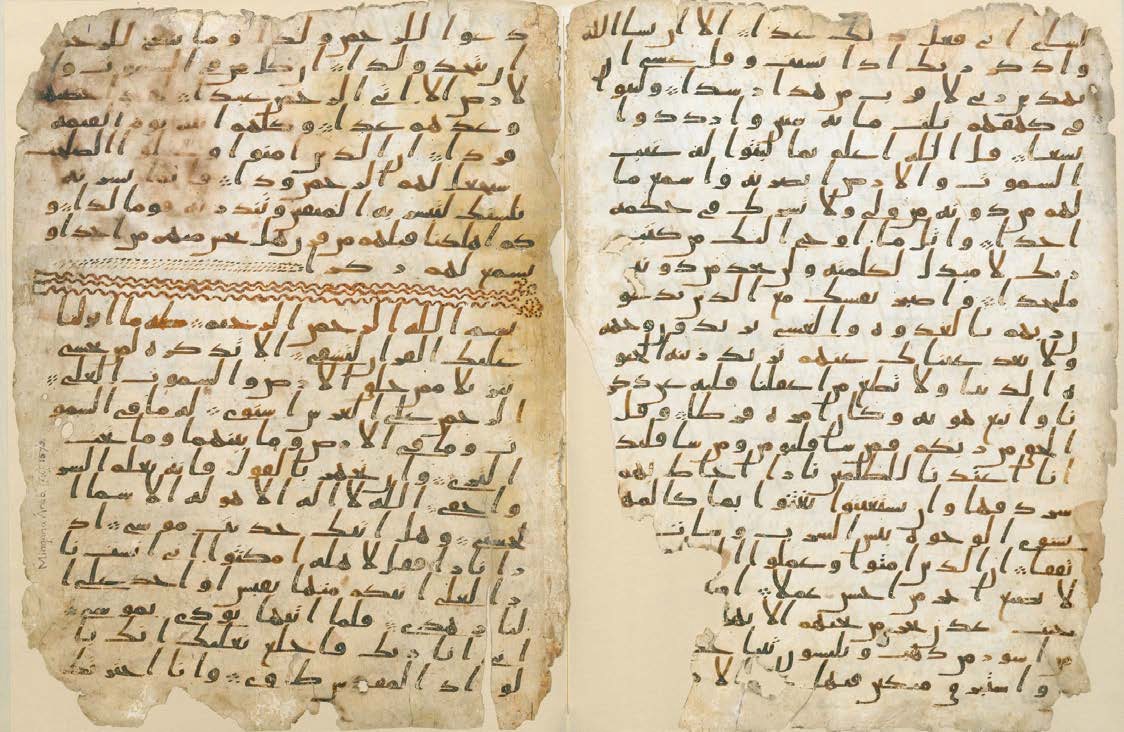 لشاي اني فعل ذلك غدا الا ان يشا الله
واذكر ربك اذا نسيت وقل عسى ان
يهدين ربي لاقرب من هذا رشدا ولبثوا
في كهفهم ثلث مائة سنين وازددوا
تسعا قل الله اعلم بما لبثوا له غيب
السموت والارض ابصر به واسمع ما
لهم من دونه من ولي ولا يشرك في حكمه
احدا واتل ما اوحي اليك من كتب
ربك لا مبدل لكلمته ولن تجد من دونه
ملتحدا واصبر نفسك مع الذين يدعون
ربهم بالغدوة والعشي يريدون وجهه
ولا تعد عيناك عنهم تريد زينة الحيو
ة الدنيا ولا تطع من اغفلنا قلبه عن ذكر
نا واتبع هويه وكان امره فرطا وقل
الحق من ربكم فمن شا فليومن ومن شا فليكفر
انا اعتدنا للظلمين نارا احاط بهم
سردقها وان يستغيثوا يغثوا بما كالمهل
يشوي الوجوه بئس الشرب وسات
مرتفقا ان الذين امنوا وعملوا
لا نضيع اجر من احسن عملا
عدن تجري من تحتهم الانهر
من اسور من ذهب ويلبسون ثيابا
واستبرق متكين فيها الار
دعوا للرحمن ولدا وما ينبغي للرحمن
ان يتخذ ولدا ان كل من في السموت وا
لارض الا اتي الرحمن عبدا لقد احصيهم
وعدهم عدا وكلهم اتيه يوم القيمة
فردا ان الذين امنوا وعملوا الصلحت
سيجعل لهم الرحمن ودا فانما يسرنه
بلسنك لتبشر به المتقين وتنذر به قوما لدا و
كم اهلكنا قبلهم من قرن هل تحس منهم من احد او
تسمع لهم ركزا
بسم الله الرحمن الرحيم طه ما انزلنا
عليك القران لتشقى الا تذكرة لمن يخشى
تنزيلا ممن خلق الارض والسموت العلى
الرحمن على العرش استوى له ما في السمو
ت وما في الارض وما بينهما وما تحت
الثرى وان تجهر بالقول فانه يعلم السر
واخفى الله لا اله الا هو له الاسما ا
لحسنى وهل اتيك حديث موسى اذ
را نارا فقل لاهله امكثوا اني انست نا
را لعلي اتيكم منها بقبس او اجد على ا
لنار هدى فلما اتيها نودي يموسى
اني انا ربك فاخلع نعليك انك با
لواد المقدس طوى وانا اخترتك